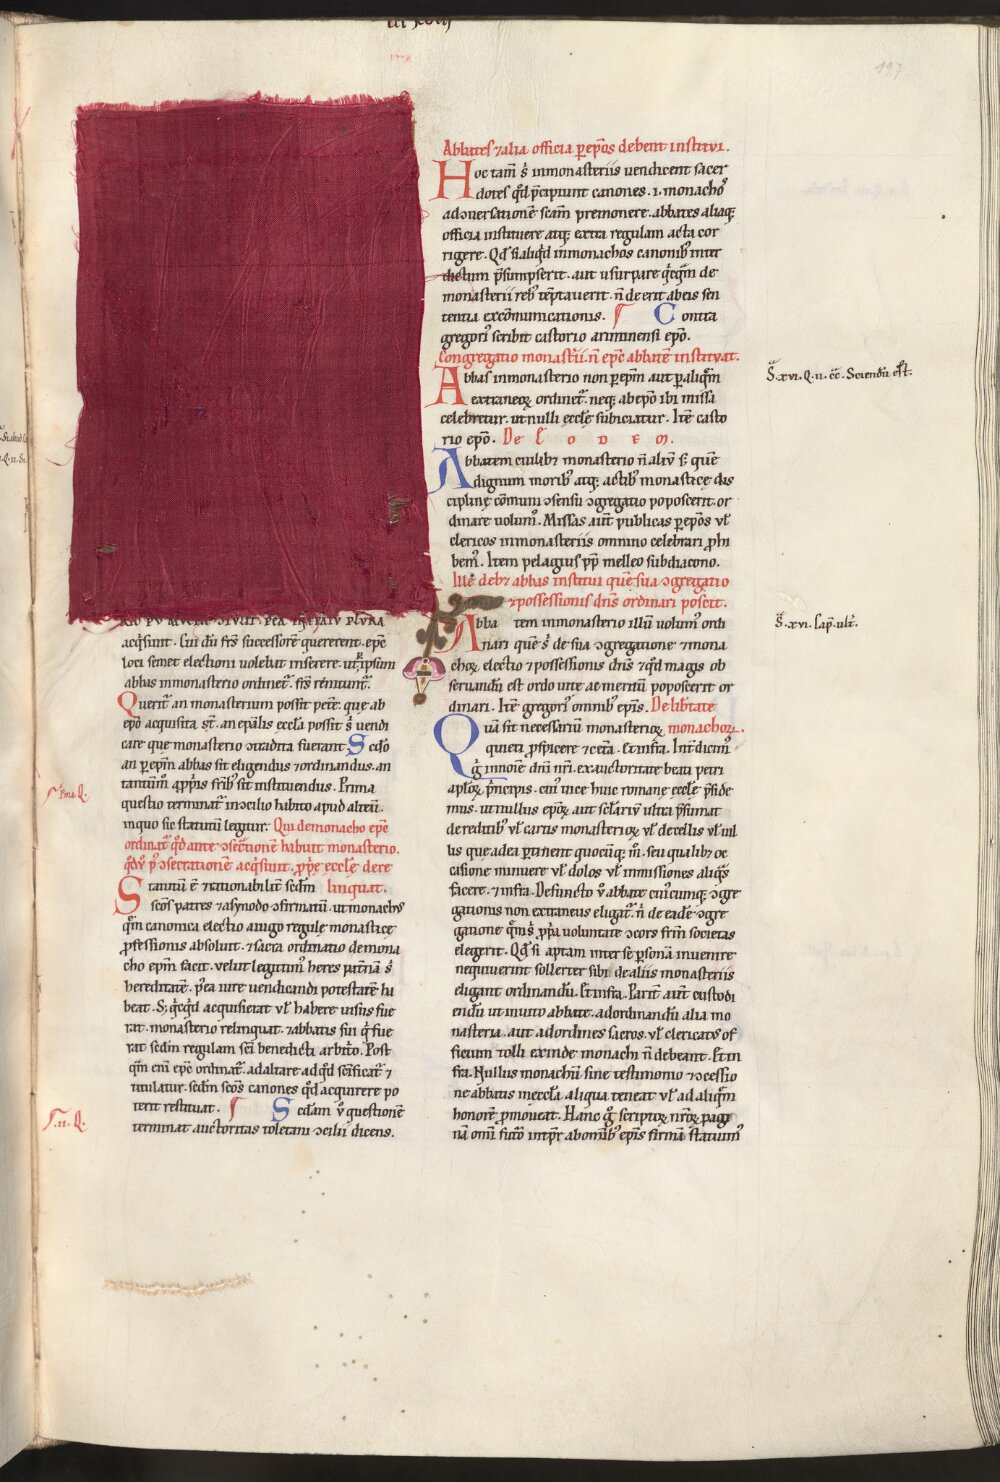 197
Abbates ⁊ alia officia p̱ ep̄os debent institui.
Hoc tam̄ s̄ in monasteriis vendicent sacer
dotes q̄d p̄cipiunt canones .i. monachoꝰ
ad ↄversationē sc̄am premonere. abbates aliaqꝫ
officia instituere atqꝫ extra regulam acta cor
rigere. Qd̓ si aliq̄d in monachos canonibꝰ inter
dictum p̄sumpserit. aut usurpare q̄cq̄m de
monasterii rebꝰ tēptaverit. n̄ deerit ab eis sen
tentia excōmunicationis. Contra
gregoriꝰ scribit castorio ariminensi ep̄o.
Congregatio monast̄ii. n̄ ep̄c abbatē instituat.
Abbas in monasterio non p̱ ep̄m aut p̱ aliq̄m
extraneoꝝ ordinet̄. neqꝫ ab ep̄o ibi missa
celebretur. ut nulli eccl̄ę subiciatur. Itē casto
rio ep̄o. De Eodem.
Abbatem cuilibꝫ monasterio n̄ aliū s; quē
dignum moribꝰ atqꝫ actibꝰ monasticę dis
ciplinę cōmuni ↄsensu ↄgregatio poposcerit. or
dinare volumꝰ. Missas aut̄ publicas p̱ ep̄os vl̓
clericos in monasteriis omnino celebrari ꝓhi
bemꝰ. Item pelagius pp̄ melleo subdiacono.
Ille debꝫ abbas institui quē sua ↄgregatio
⁊ possessionis dn̄s ordinari poscit.
Abbatem in monasterio illū volumꝰ ordi
nari quē s; de sua ↄgregatione ⁊ mona
choꝝ electio ⁊ possessionis dn̄s ⁊ q̄d magis ob
servandū est ordo vitę ac meritū poposcerit or
dinari. Itē gregoriꝰ omnibꝰ ep̄is. De lib̄tate
Quā sit necessariū monasterioꝝ monachoꝝ.
quieti ꝓspicere ⁊ cetā. Et infra. Int̄dicimꝰ
g̊ in noīe dn̄i nr̄i. ex auctoritate beati petri
apl̄oꝝ p̄ncipis. cuiꝰ vice huic romanę eccl̄ę p̄side
mus. ut nullus ep̄oꝝ aut sc̄lariū ultra p̄sumat
de reditibꝰ vl̓ cartis monasterioꝝ vl̓ de cellis vl̓ vil
lis quę ad ea p̱tinent quocūqꝫ m̊. seu qualibꝫ oc
casione minuere vl̓ dolos vl̓ inmissiones aliq̄s
facere. ⁊ infra. Defuncto v̊ abbate cuiꝰcumqꝫ ↄgre
gationis non extraneus eligat̄. n̄ de eadē ↄgre
gatione quē s; ꝓp̄a voluntate ↄcors fr̄m societas
elegerit. Qd̓ si aptam inter se p̱sonā invenire
nequiverint sollerter sibi de aliis monasteriis
eligant ordinandū. Et infra. Parit̄ aut̄ custodi
endū ut invito abbate. ad ordinandū alia mo
nasteria. aut ad ordines sacros. vl̓ clericatꝰ of
ficium tolli exinde monachi n̄ debeant. Et in
fra. Nullus monachū sine testimonio ⁊ ↄcessio
ne abbatis in eccl̄a aliqua teneat vl̓ ad aliq̄m
honorē ꝓmoveat. Hanc g̊ scriptoꝝ nr̄oꝝ pagi
nā omī futō intp̄r ab omībꝰ ep̄is firmā statuimꝰ
acq̄sivit. Cui dū fr̄s successorē quererent. ep̄c
loci semet electioni volebat inserere. ut p̱ ipsum
abbas in monasterio ordinet̄. fr̄s renitunt̄.
Querit̄ an monasterium possit petē. quę ab
ep̄o acquisita st̄. an ep̄alis eccl̄a possit s̄ vendi
care quę monasterio ↄtradita fuerant. Scdo
an p̱ ep̄m abbas sit eligendus ⁊ ordinandus. an
tantūm̊ a ꝓp̄is fr̄ibꝰ sit instituendus. Prima
questio terminat̄ in ↄcilio habito apud altēū.
in quo sic statutū legitur. Qui de monacho ep̄c
ordinat̄ q̄d ante ↄsec̄tionē habuit monasterio.
q̄d v̊ p̊ ↄsecrationē acq̄sivit. ꝓp̄e eccl̄ę dere
Statutū ē ⁊ rationabilit̄ scd̄m linquat.
sc̄os patres ⁊ a synodo ↄfirmatū. ut monachꝰ
q̄m canonica electio a iugo regulę monasticę
ꝓfessionis absolvit. ⁊ sacra ordinatio de mona
cho ep̄m facit. velut legitimꝰ heres pat̄nā s̄
hereditatē. p̊ea iure vendicandi potestatē ha
beat. S; q̄cq̄d acquisierat vl̓ habere visus fue
rat. monasterio relinquat. ⁊ abbatis sui q̄ fue
rat scd̄m regulam sc̄i benedicti arbit̊o. Post
q̄m eni̅ ep̄c ordinat̄. ad altare ad q̄d sc̄ificat̄ ⁊
titulatur. scd̄m sc̄os canones q̄d acquirere po
terit restituat. Scdam v̊ questionē
terminat auctoritas toletani ↄcilii dicens.
S̄. xvi. Q. ii. c̄c. Sciendū est.
S̄. xvi. Cap. ult̄.
S̄. Pma Q.
S̄. ii. Q.